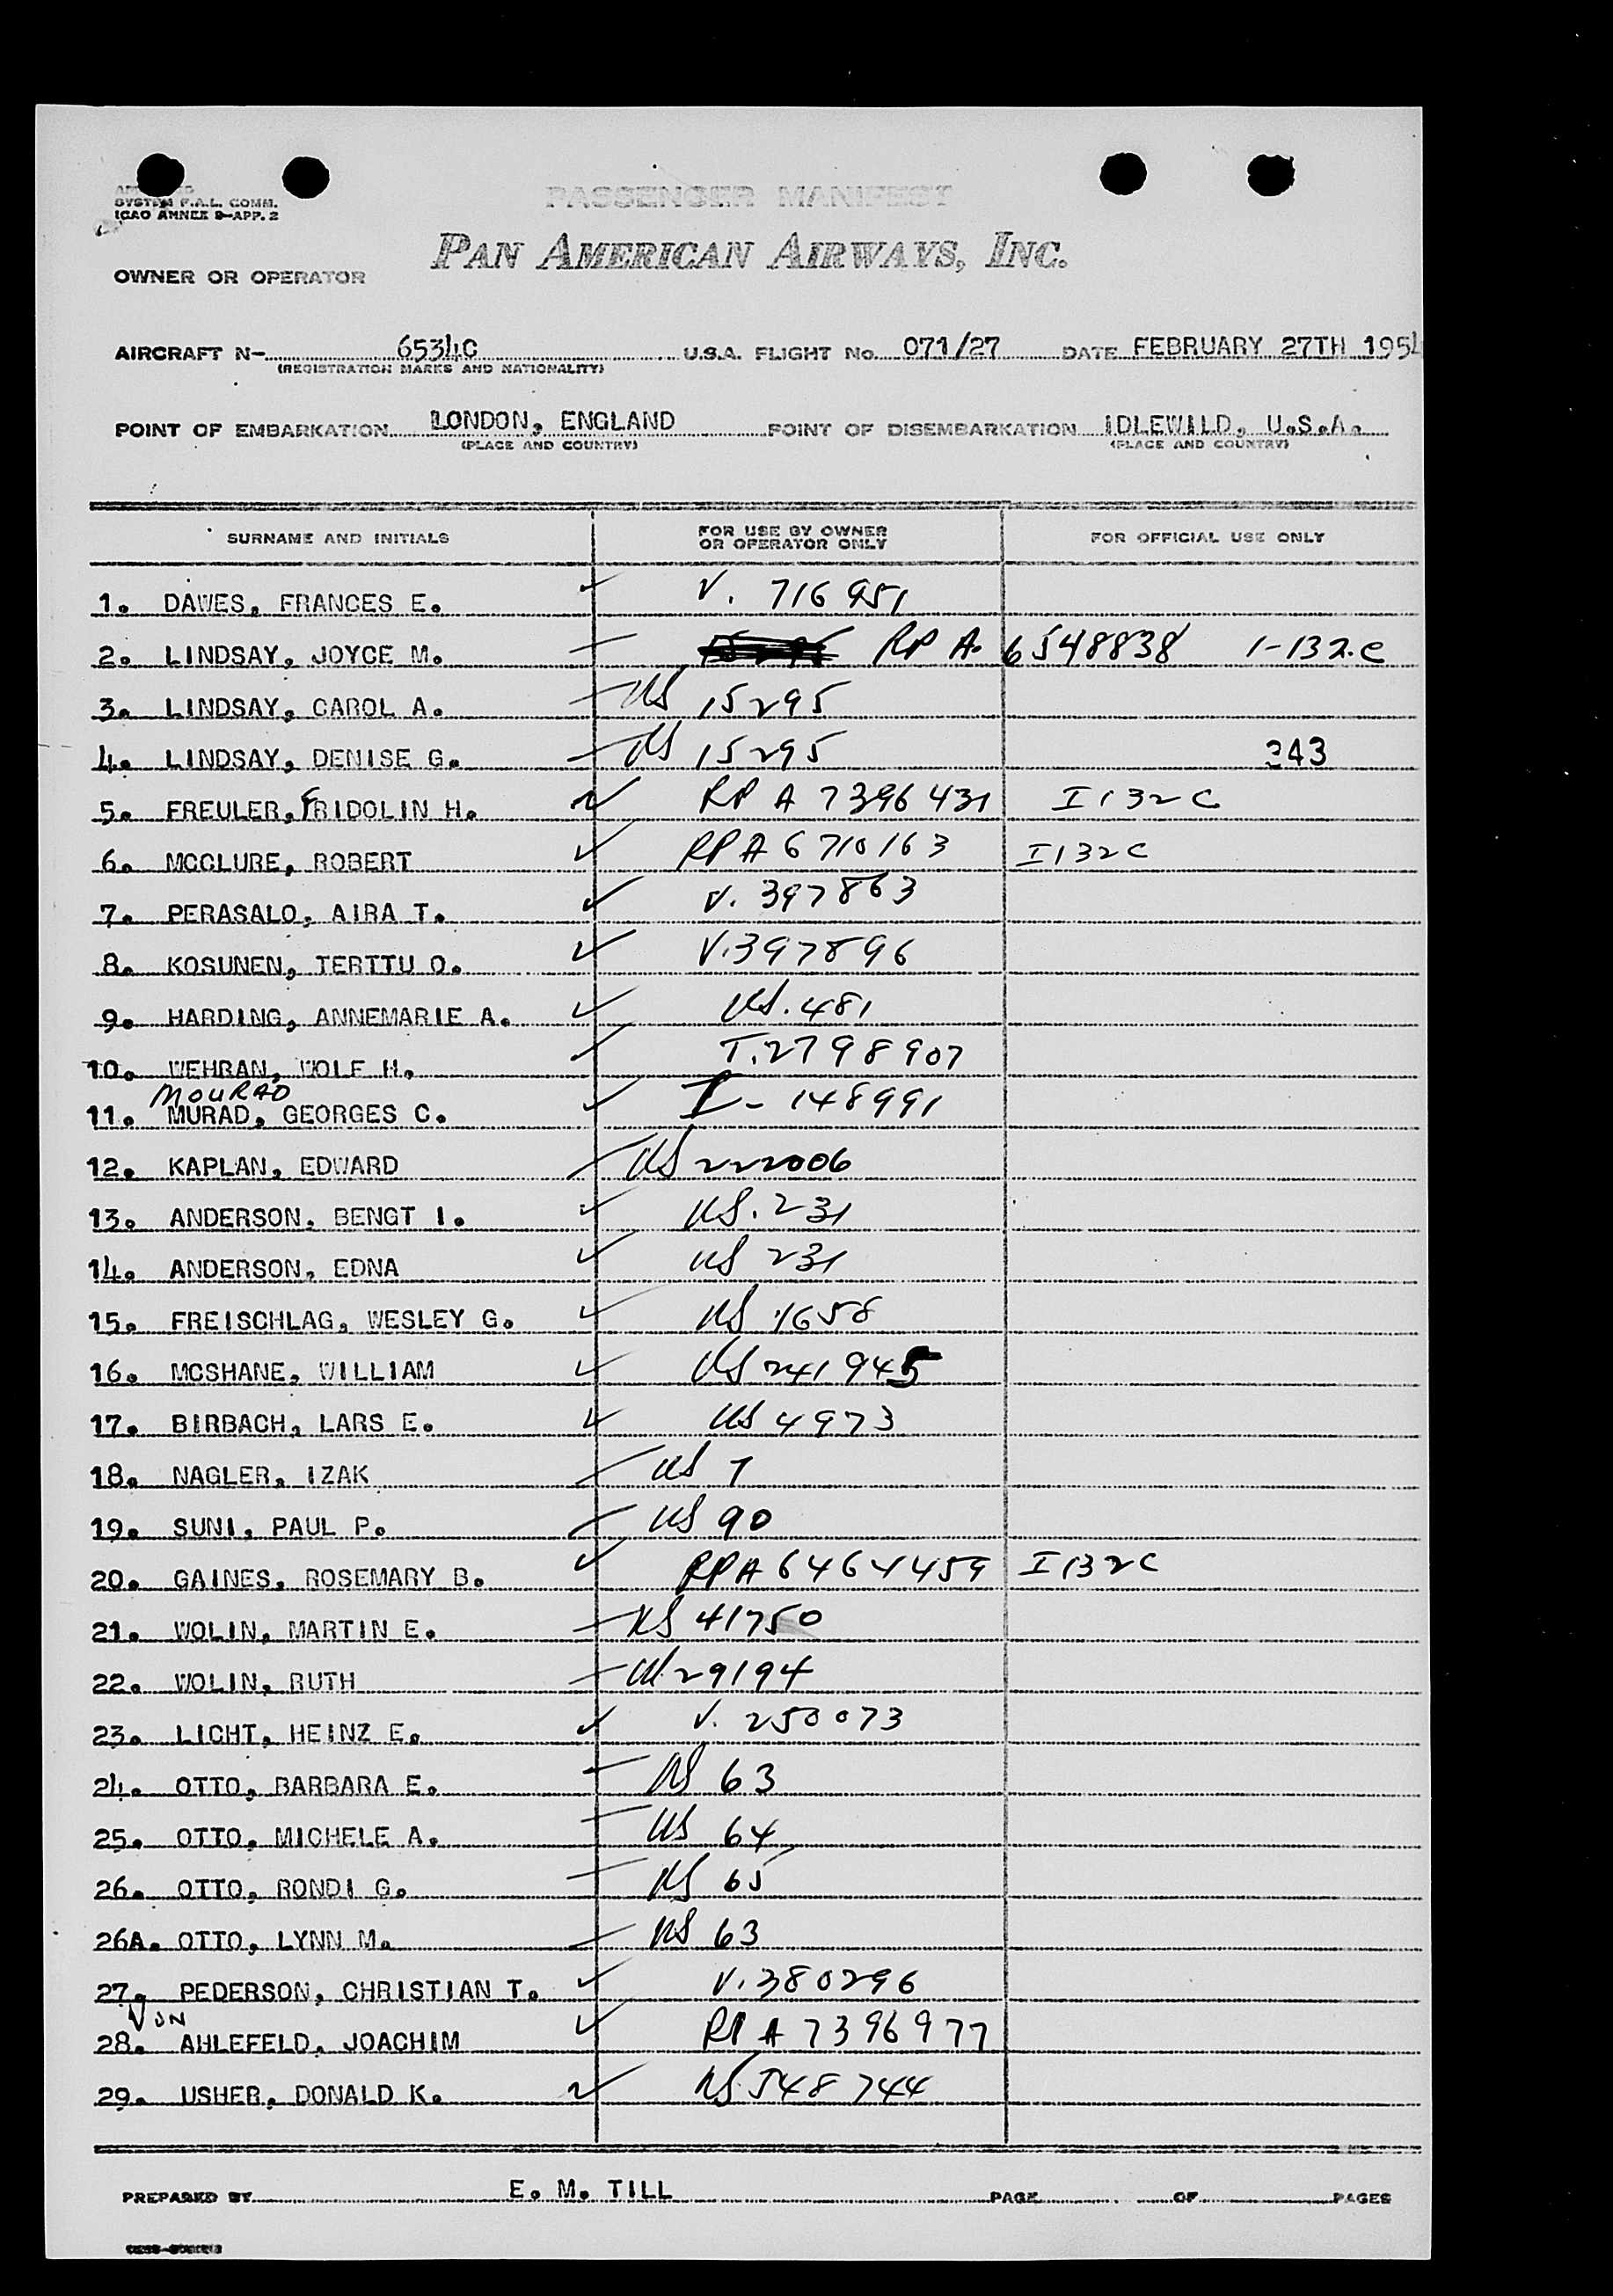 SYSTEM F.A.L. COMM.
ICAO ANNEX 9-APP. 2
PASSENGER MANIFEST
PAN AMERICAN AIRWAYS, INC.
OWNER OR OPERATOR
AIRCRAFT N- 6534C U.S.A. FLIGHT No. 071/27 DATE FEBRUARY 27TH 1954
(REGISTRATION MARKS AND NATIONALITY)
POINT OF EMBARKATION LONDON, ENGLAND POINT OF DISEMBARKATION IDLEWILD, U.S.A.
(PLACE AND COUNTRY) (PLACE AND COUNTRY)
SURNAME AND INITIALS FOR USE BY OWNER OR OPERATOR ONLY FOR OFFICIAL USE ONLY
1. DAWES, FRANCES E. V. 716951
2. LINDSAY, JOYCE M. RP A. 6548838 1-132.C
3. LINDSAY, CAROL A. US 15295
4. LINDSAY, DENISE G. US 15295 243
5. FREULER, FRIDOLIN H. RP A 7396431 I132C
6. MCCLURE, ROBERT RPA 6710163 I132C
7. PERASALO, AIRA T. V. 397863
8. KOSUNEN, TERTTU O. V.397896
9. HARDING, ANNEMARIE A. US.481
10. WEHRAN, WOLF H. T.2798907
MOURAD
11. MURAD, GEORGES C. I- 148991
12. KAPLAN, EDWARD US 222006
13. ANDERSON, BENGT I. US. 231
14. ANDERSON, EDNA US 231
15. FREISCHLAG, WESLEY G. US 1658
16. MCSHANE, WILLIAM US 241945
17. BIRBACH, LARS E. US 4973
18. NAGLER, IZAK US 7
19. SUNI, PAUL P. US 90
20. GAINES, ROSEMARY B. RPA 6464459 I132C
21. WOLIN, MARTIN E. US 41750
22. WOLIN, RUTH US 29194
23. LICHT, HEINZ E. V. 250073
24. OTTO, BARBARA E. US 63
25. OTTO, MICHELE A. US 64
26. OTTO, RONDI G. US 65
26A. OTTO, LYNN M. US 63
27. PEDERSON, CHRISTIAN T. V.380296
VON
28. AHLEFELD, JOACHIM RP A 7396977
29. USHER, DONALD K. US.548744
PREPARED BY E. M. TILL PAGE OF PAGES